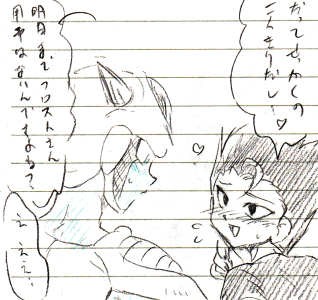 だってせっかくの
二人きりだし～♡
明日までフロストさん
用事ないんですよね？
え
ええ…